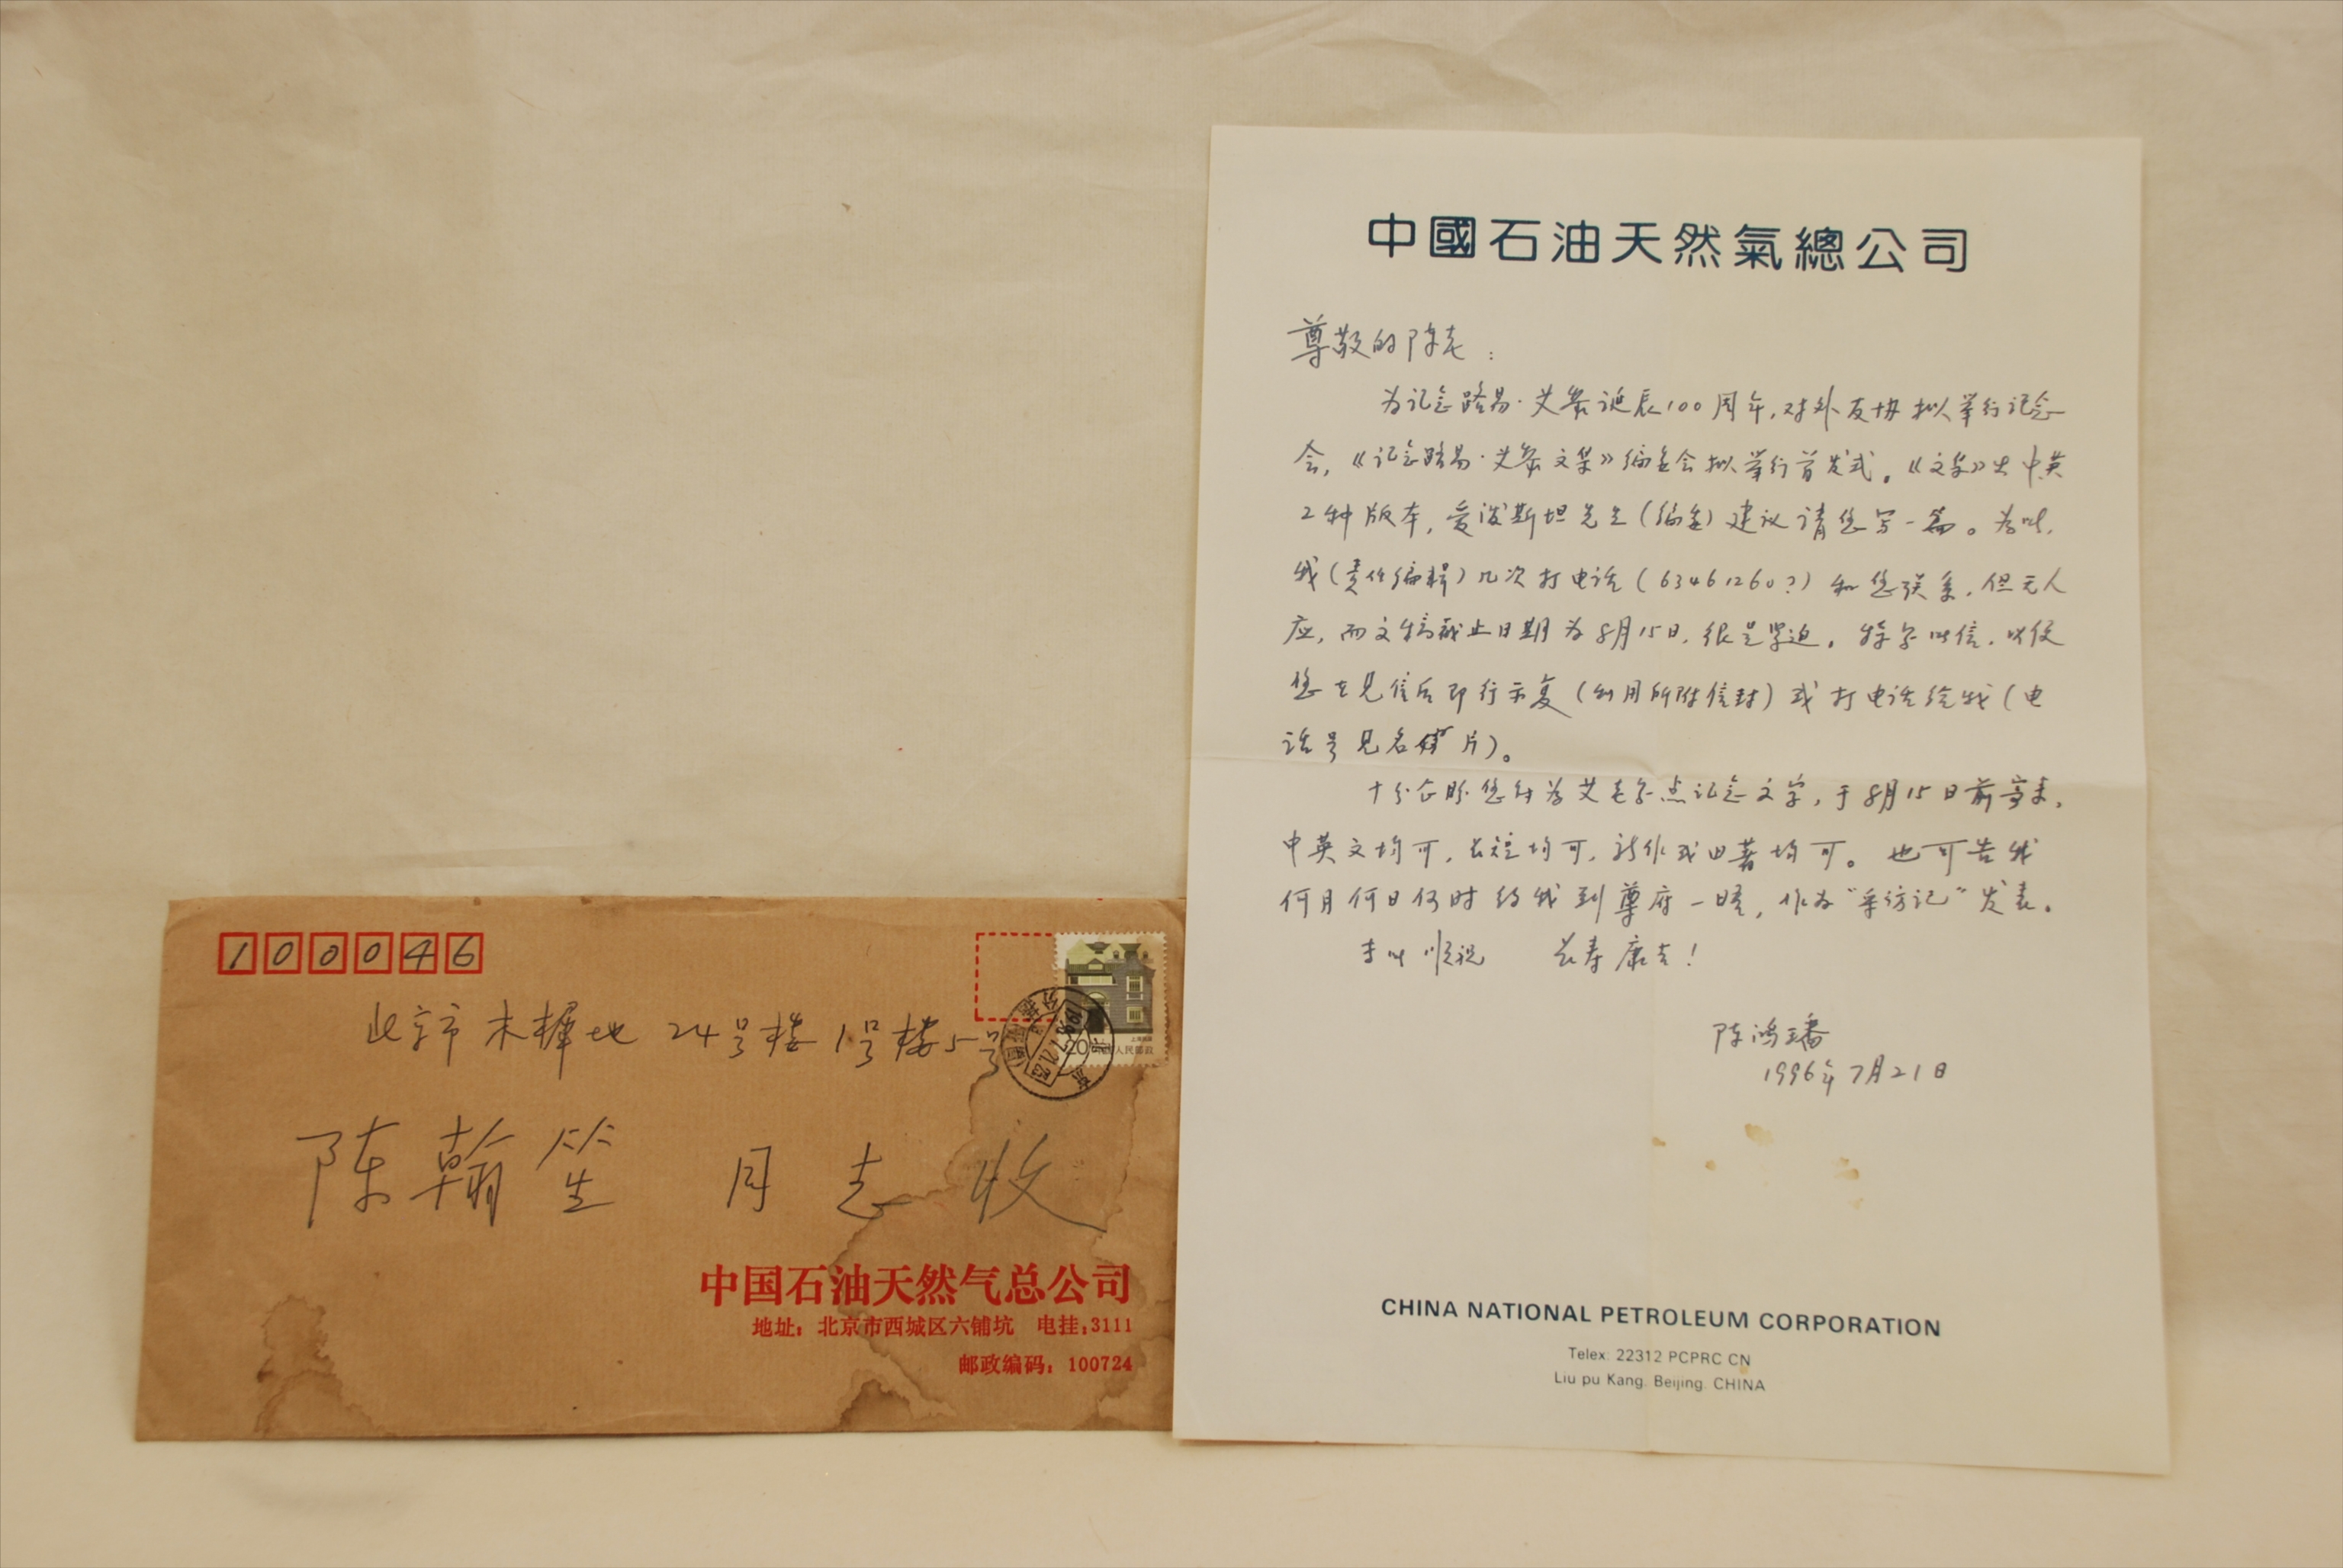 100046
北京市木樨地24号楼1号楼5号
陈翰笙 同志 收
20
中国人民邮政
中国石油天然气总公司
地址：北京市西城区六铺坑 电挂：3111
邮政编码：100724
中國石油天然氣總公司
尊敬的陈老：
为记念路易·艾黎诞辰100周年，对外友协拟举行记念
会，《记念路易·艾黎文集》编委会拟举行首发式。《文集》出中英
2种版本，爱泼斯坦先生（编委）建议请您写一篇。为此，
我（责任编辑）几次打电话（63461260？）和您联系，但无人
应，而文稿截止日期为8月15日，很是紧迫。特写此信，以便
您在见信后即行示复（利用所附信封）或打电话给我（电
话号见名片）。
十分企盼您能为艾老写点记念文字，于8月15日前寄来，
中英文均可，长短均可，新作或旧著均可。也可告我
何月何日何时约我到尊府一晤，作为“采访记”发表。
专此顺祝 长寿康吉！
陈鸿璠
1996年7月21日
CHINA NATIONAL PETROLEUM CORPORATION
Telex: 22312 PCPRC CN
Liu pu Kang. Beijing. CHINA